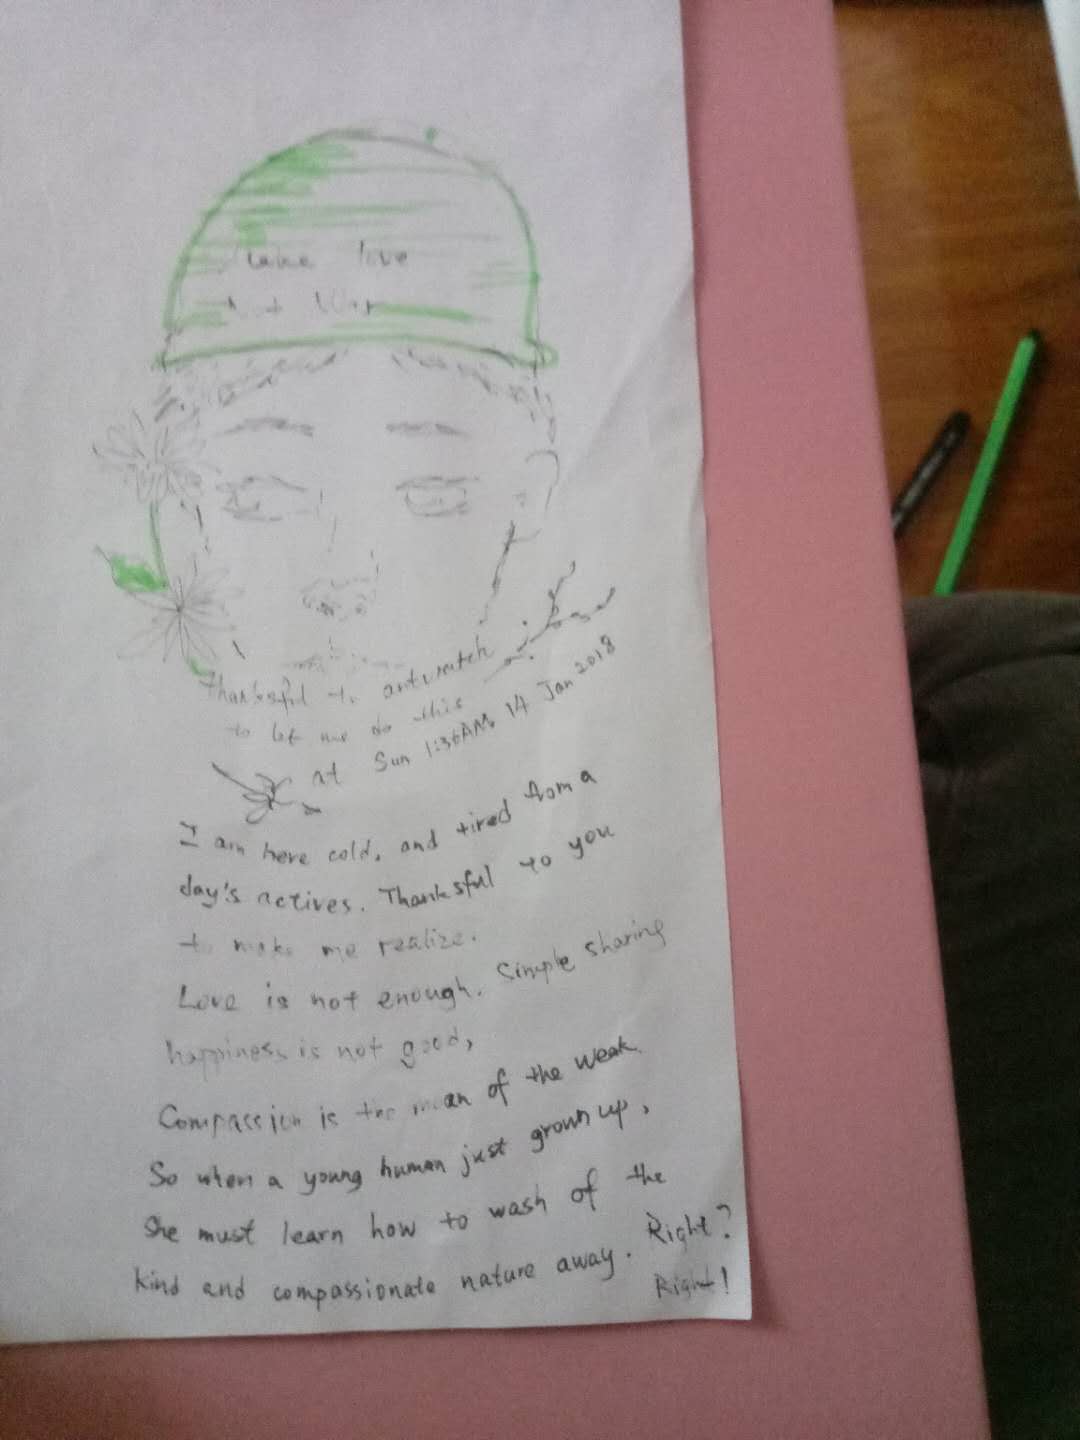 Make love
Not War
thanksful to
to let me do this
at Sun 1:36AM 14 Jan 2018
I am here cold, and tired from a
day's actives. Thanksful to you
to make me realize.
Love is not enough. Simple sharing
happiness is not good,
Compassion is the mean of the weak.
So when a young human just grown up,
She must learn how to wash of the
kind and compassionate nature away. Right?
Right!